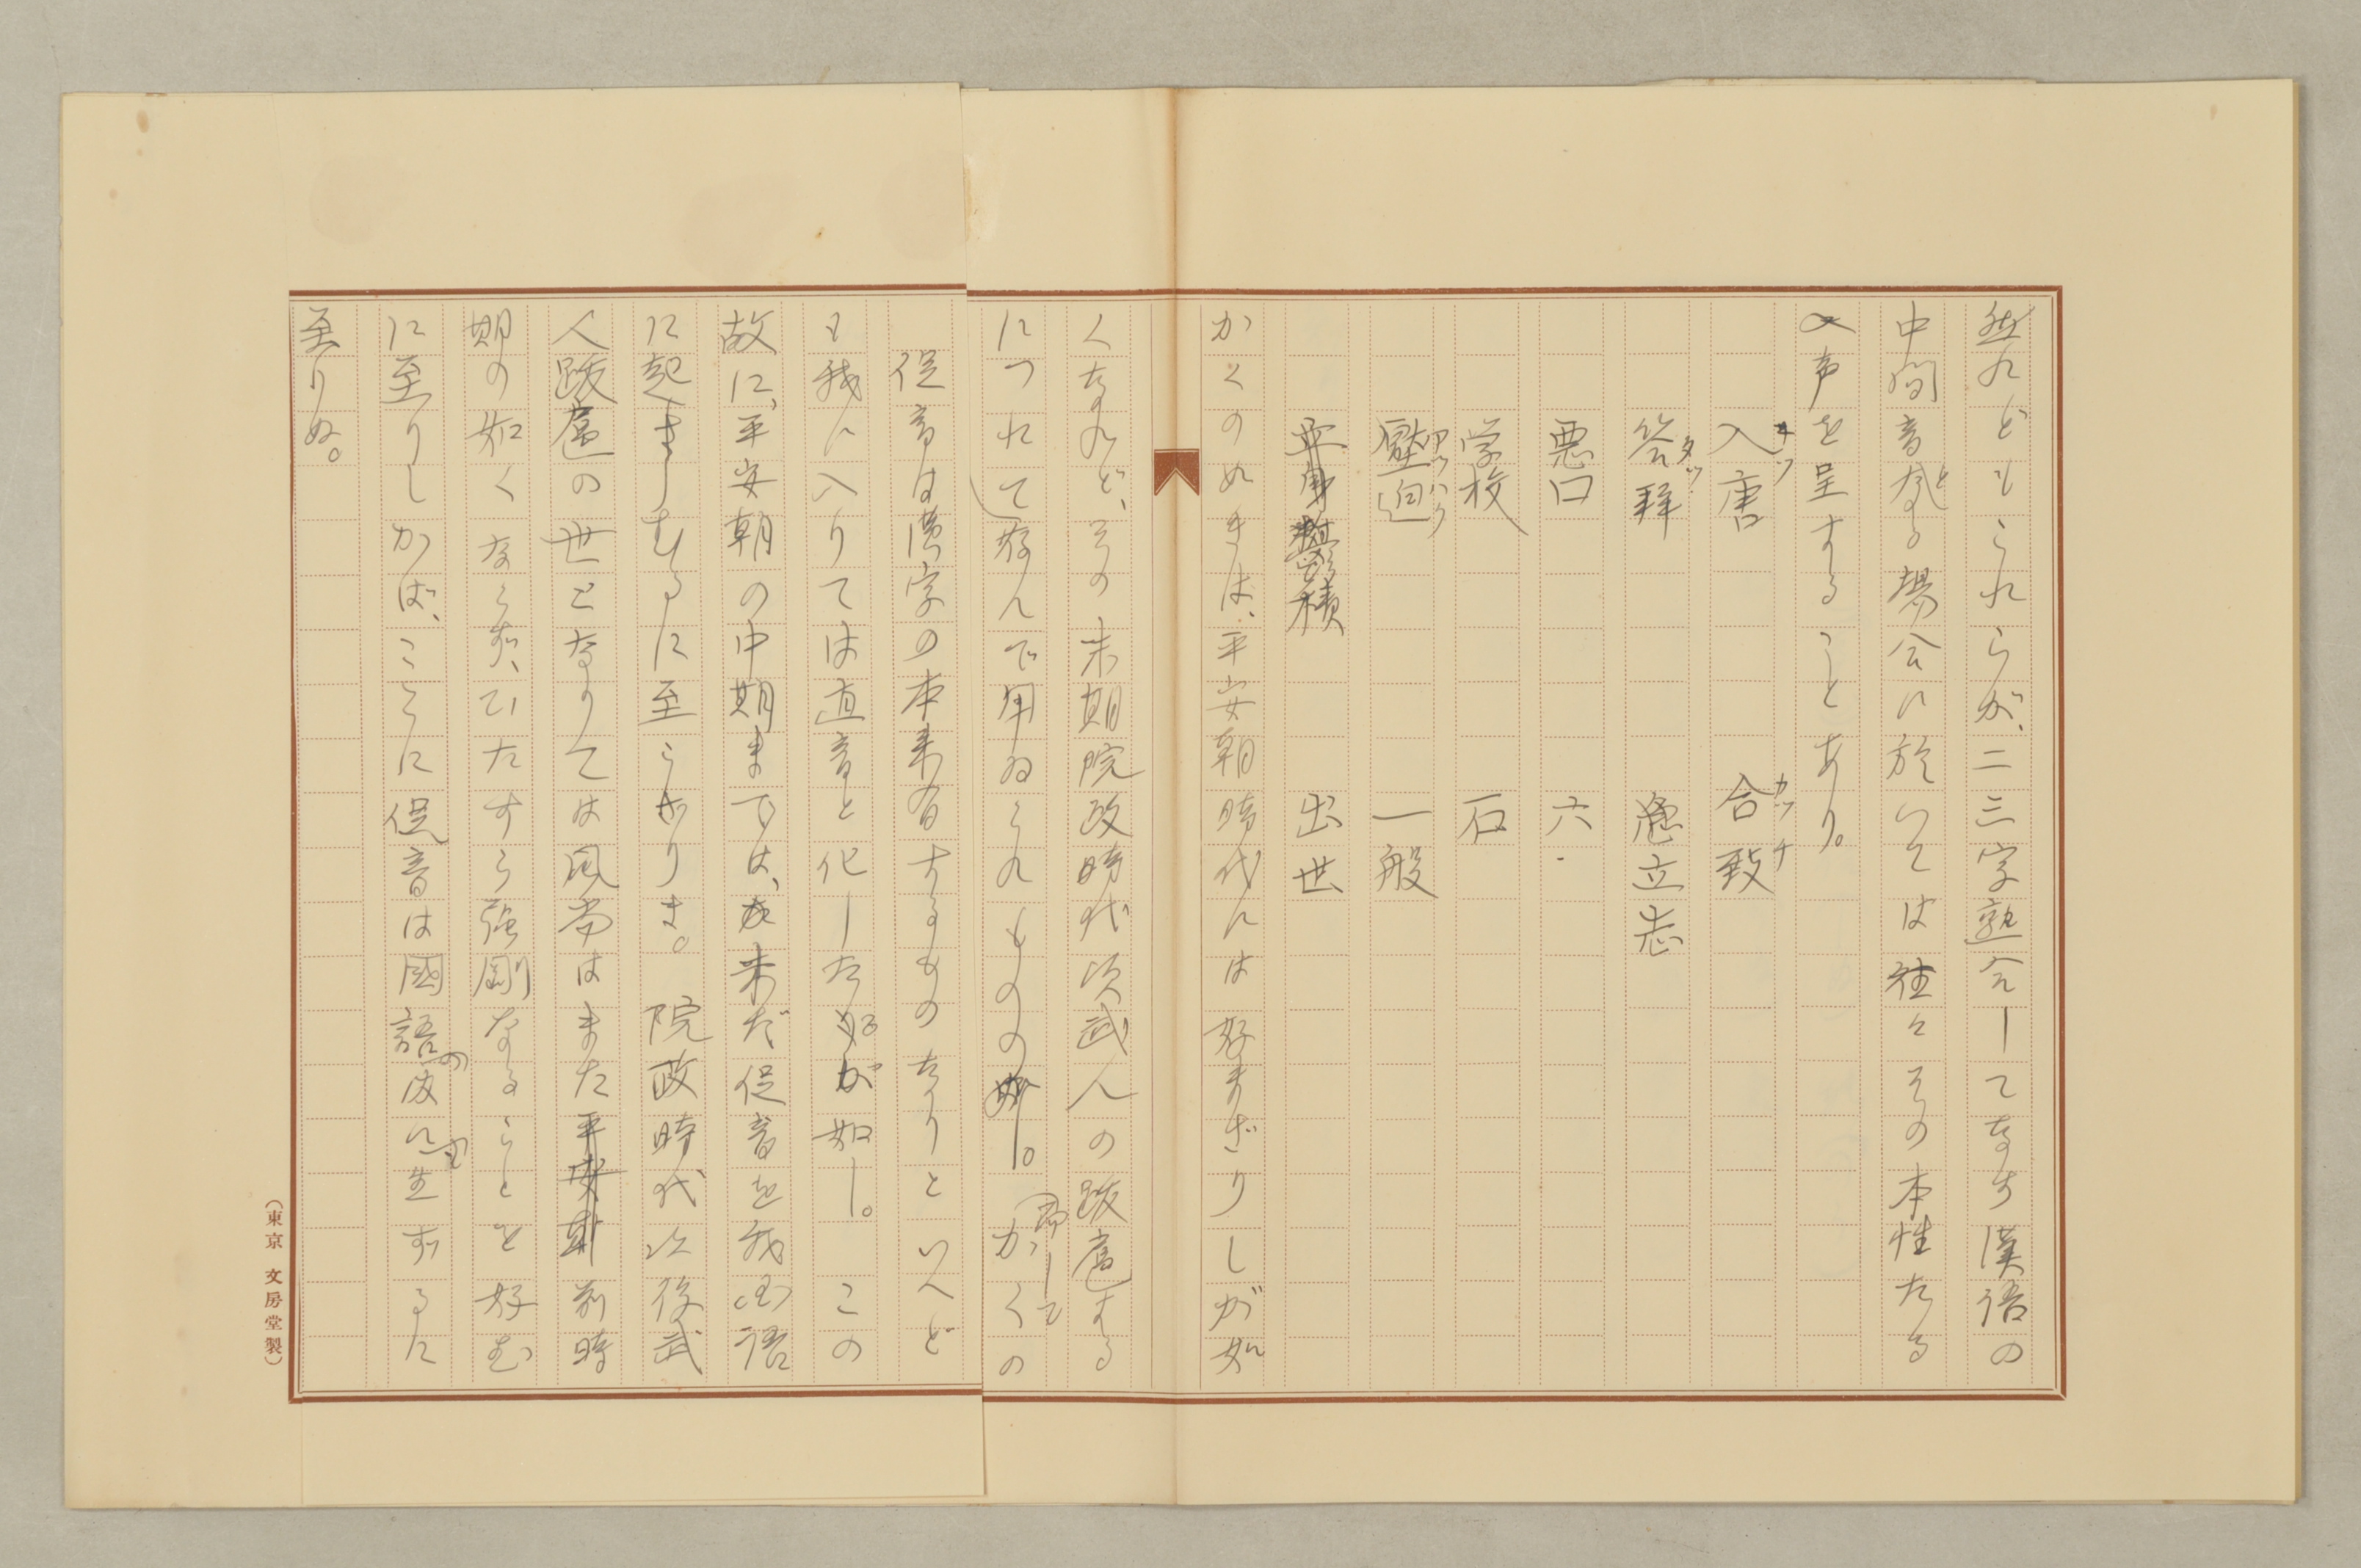 然れどもこれらが、二三字熟合してなす漢語の
中間音となる場合に於いては往々その本性たる
入声を呈することあり。
入唐 合致
答拝 立志
悪口 六
学校 石
壓迫 一般
出世
かくのぬきは、平安朝時代には好まざりしが如
くなれど、その末期院政時代頃武人の跋扈する
につれて好んで用ゐられしものの如し。而してかくの
促音は漢字の本来有するものなりといへど
も我に入りては直音と化したるが如し。この
故に、平安朝の中期までは、未だ促音を我国語
に起さしむるに至らざりき。院政時代以後武
人跋扈の世となりては風尚はまた前時
期の如くならず、ひたすら強剛なることを好む
に至りしかば、ここに促音は國語の波にも生ずるに
至りぬ。
(東京 文房堂製)